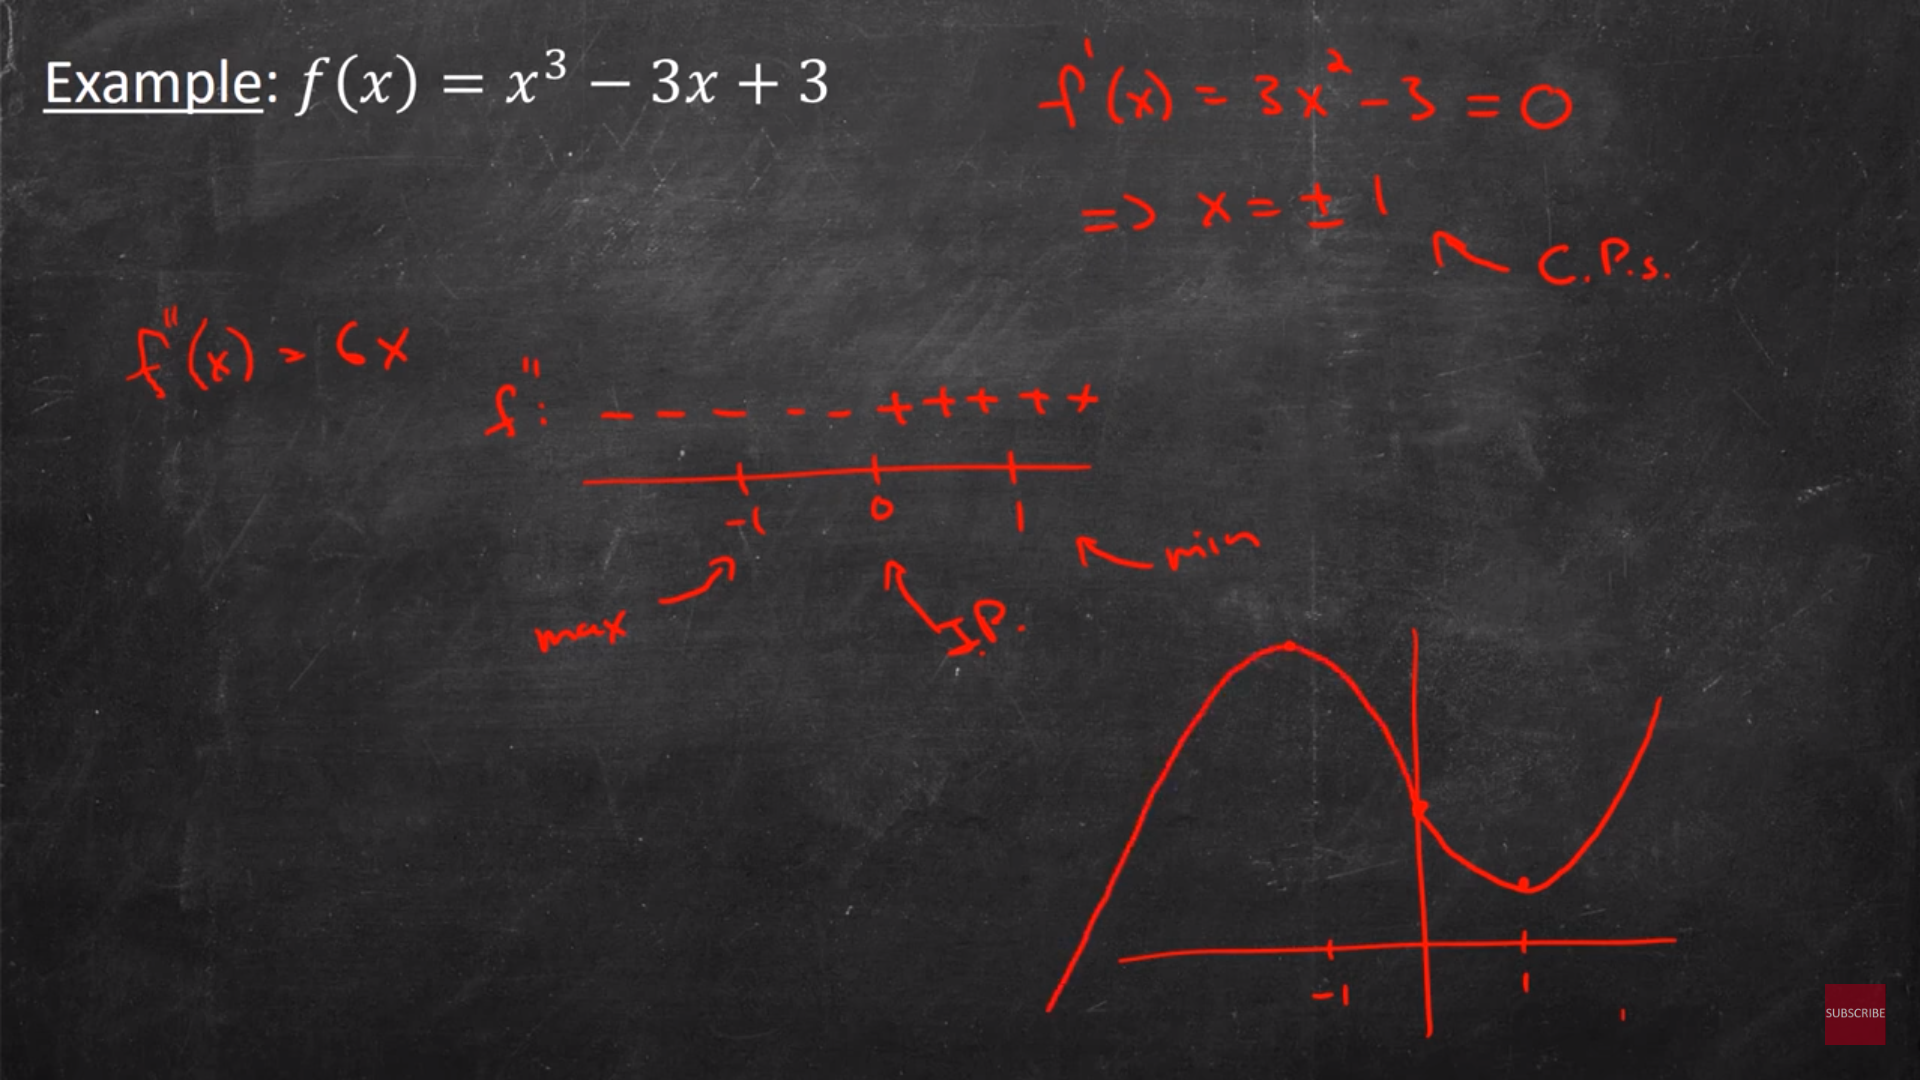 Example: f(x) = x³ − 3x + 3
f'(x) = 3x² - 3 = 0
=> x = ± 1
C.P.s.
f''(x) = 6x
f'': - - - - - + + + + +
-1 0 1
max
I.P.
min
-1 1
SUBSCRIBE